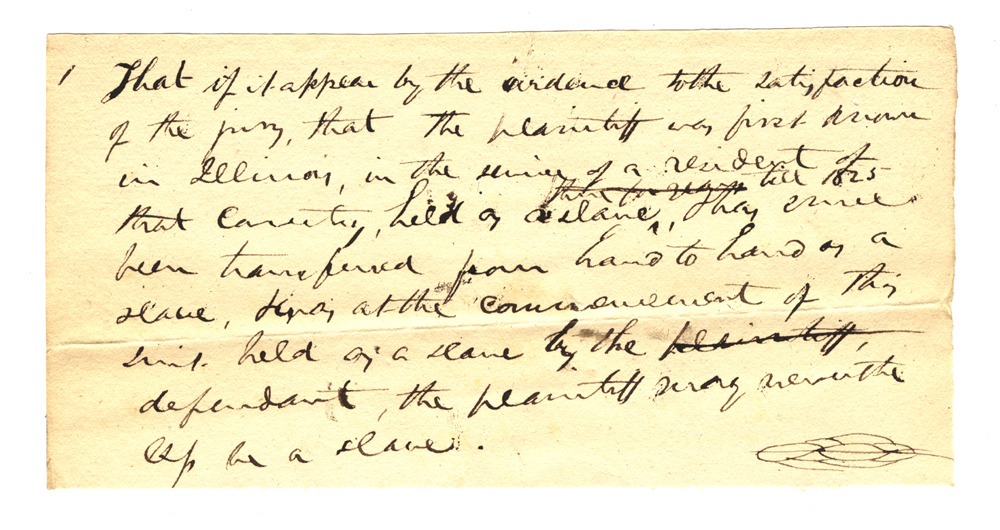 1 That if it appear by the evidence to the satisfaction
of the jury, that the plaintiff was first known
in Illinois, in the service of a resident of
till 1825
that Country, held as a slave, & has since
been transferred from hand to hand as a
slave, & was at the commencement of this
suit held as a slave by the plaintiff,
defendant, the plaintiff may neverthe
less be a slave.